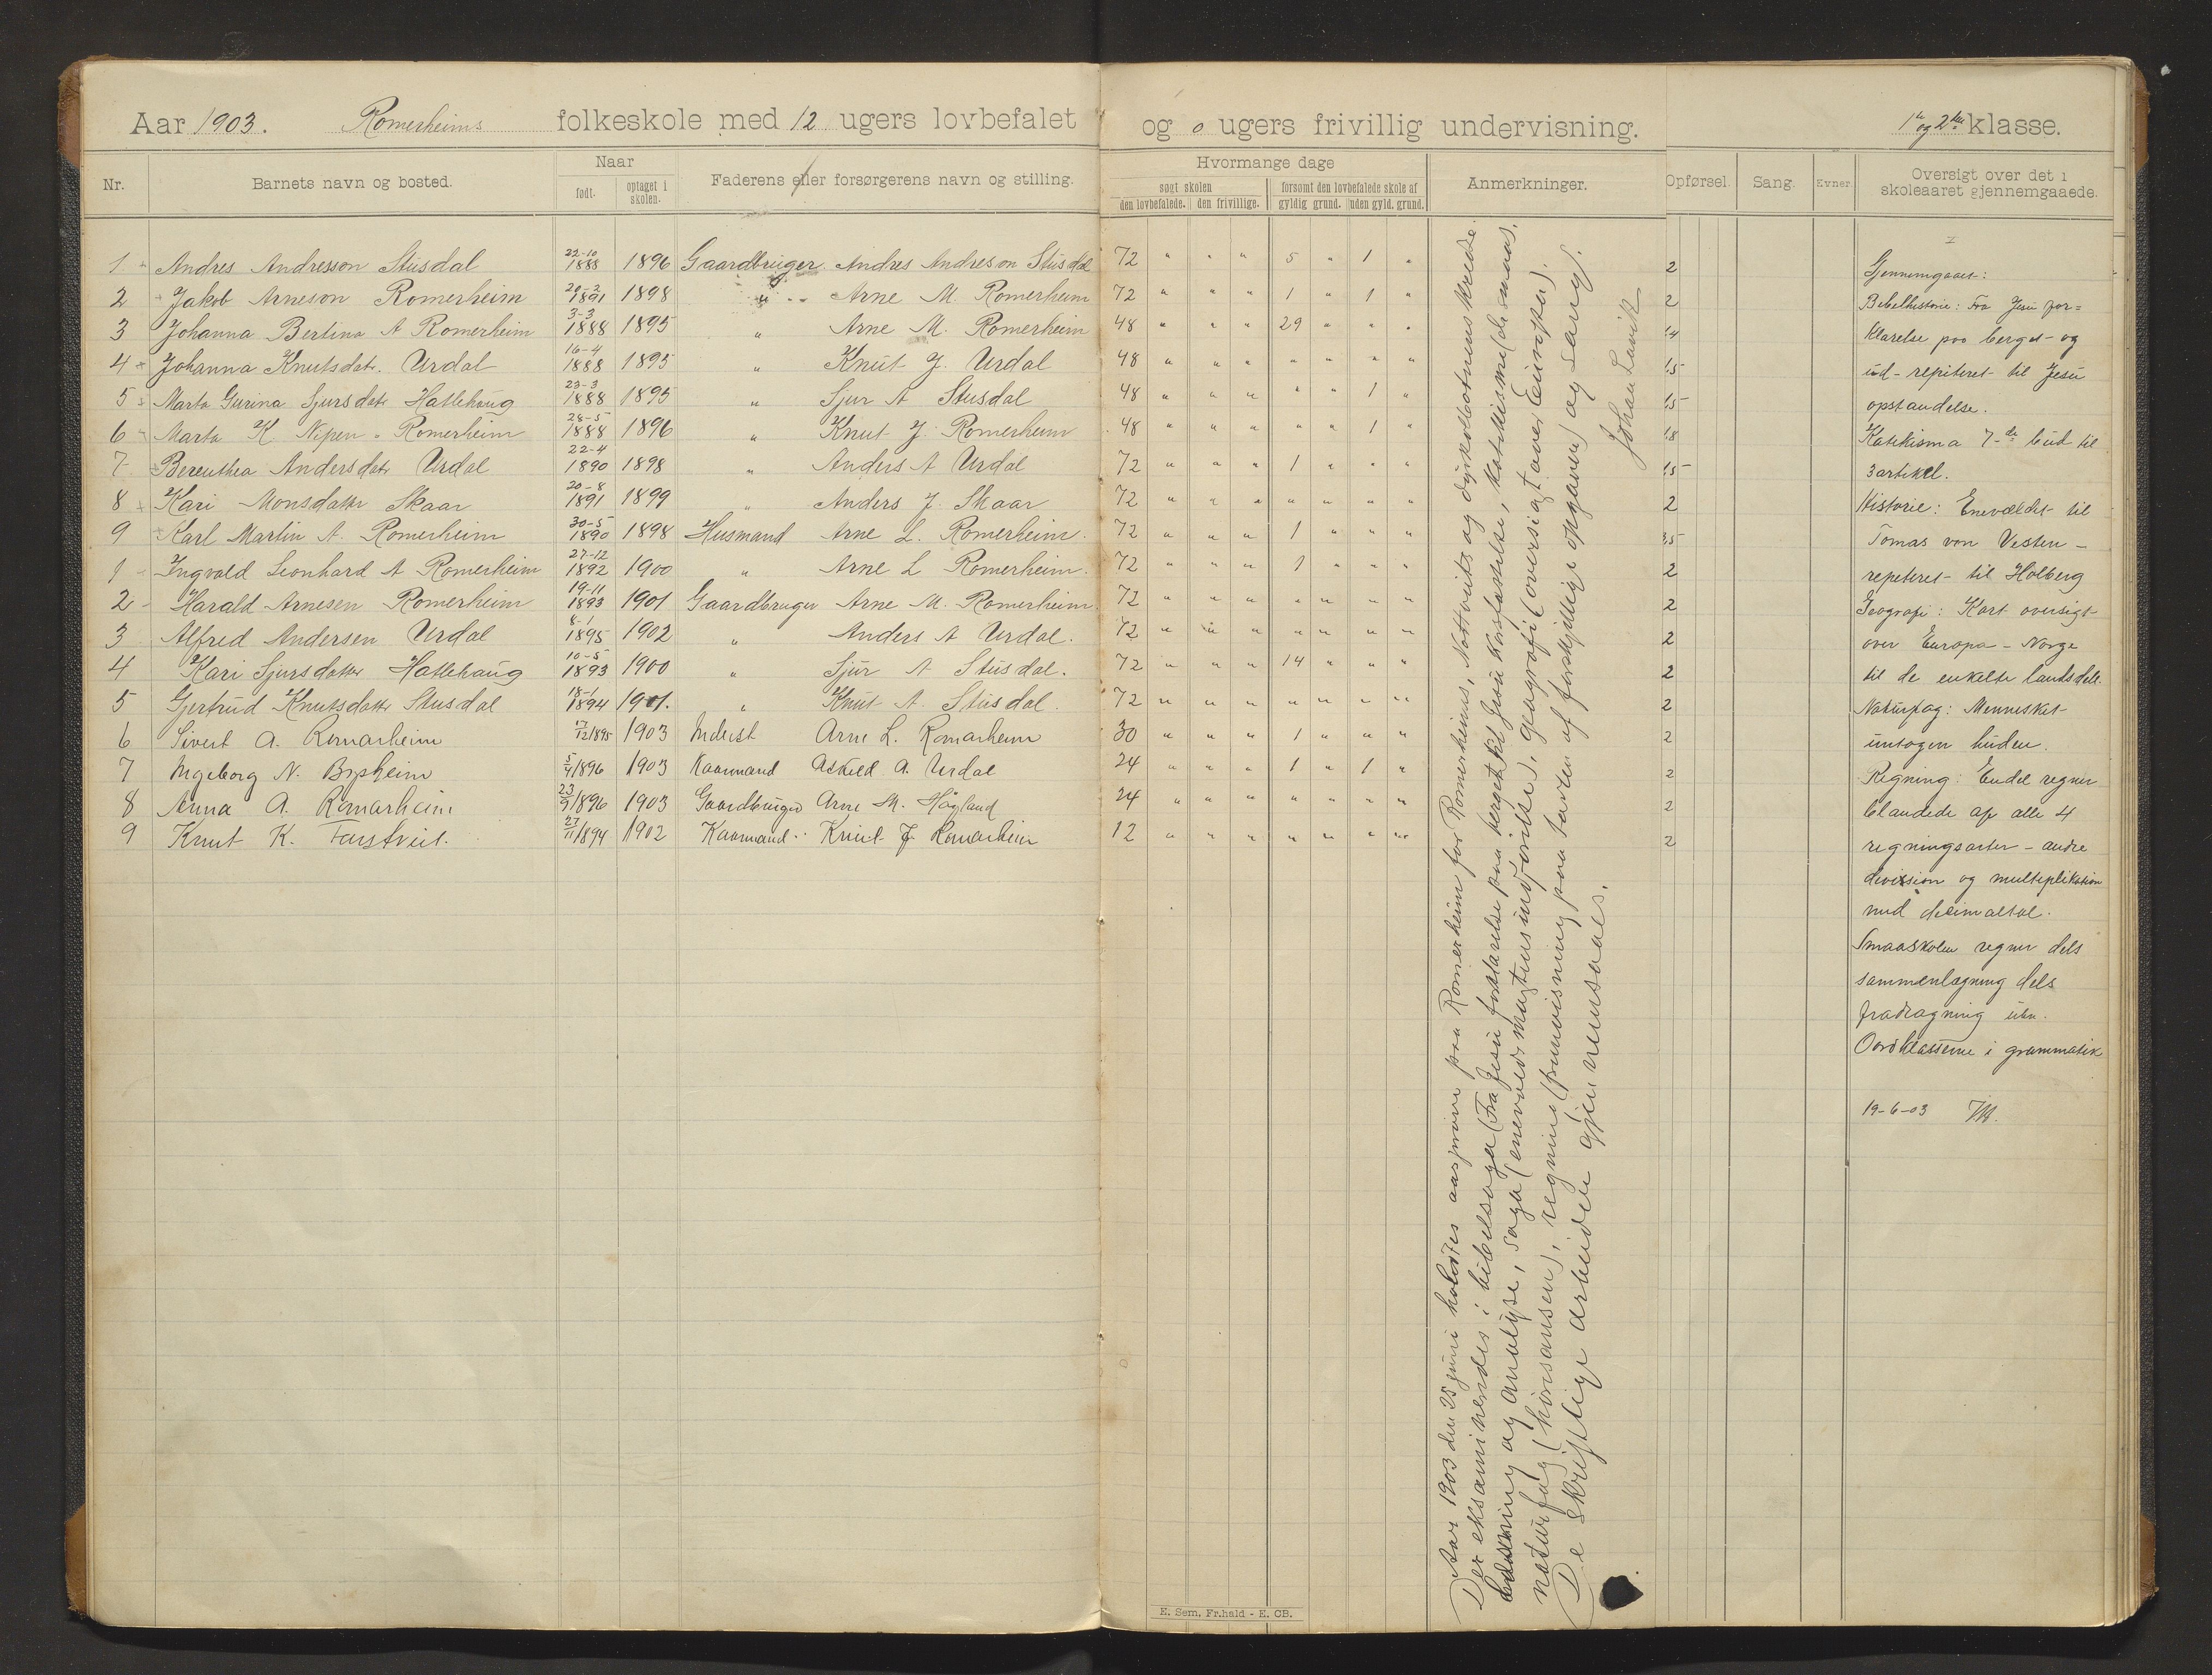 Aar 1903. Romerheims folkeskole med 12 ugers lovbefalet og 0 ugers frivillig undervisning. 1ste og 2den klasse.
Nr. Barnets navn og bosted. Naar født. optaget i skolen. Faderens eller forsørgerens navn og stilling. Hvormange dage søgt skolen den lovbefalede. den frivillige. forsømt den lovbefalede skole af gyldig grund. uden gyld. grund. Anmerkninger. Opførsel. Sang. Evner. Oversigt over det i skoleaaret gjennemgaaede.
1 Andres Andresson Stusdal 22-10 1888 1896 Gaardbruger Andres Andreson Stusdal 72 " " " 5 " 1 " 2
2 Jakob Arneson Romerheim 29-2 1891 1898 " Arne M. Romerheim 72 " " " 1 " 1 " 2
3 Johanna Bertina A Romerheim 3-3 1888 1895 " Arne M. Romerheim 48 " " " 29 " " " 1,4
4 Johanna Knutsdatr. Urdal 16-4 1888 1895 " Knut J. Urdal 48 " " " " " " " 1,5
5 Marta Gurina Sjursdatr Hatlehaug 23-3 1888 1895 " Sjur A Stusdal 48 " " " " " 1 " 1,5
6 Marta K Nipen - Romerheim 28-5 1888 1896 " Knut J. Romerheim 48 " " " " " 1 " 1,8
7 Berenthea Andersdatr Urdal 22-4 1890 1898 " Anders A Urdal 72 " " " 1 " " " 1,5
8 Kari Monsdatter Skaar 20-8 1891 1899 " Anders J. Skaar 72 " " " " " " " 2
9 Karl Martin A. Romerheim 30-5 1890 1898 Husmand Arne L. Romerheim. 72 " " " 1 " " " 3,5
1 Ingvald Leonhard A Romerheim 27-12 1892 1900 " Arne L Romerheim. 72 " " " 1 " " " 2
2 Harald Arnesen Romerheim 19-11 1893 1901 Gaardbruger Arne M. Romerheim 72 " " " " " " " 2
3 Alfred Andersen Urdal 8-1 1895 1902 " Anders A Urdal. 72 " " " " " " " 2
4 Kari Sjursdatter Hatlehaug 10-5 1893 1900 " Sjur A Stusdal. 72 " " " 14 " " " 2
5 Gjertrud Knutsdatter Stusdal 18-1 1894 1901. " Knut A. Stusdal. 72 " " " " " " " 2
6 Sivert A. Romarheim 17/12 1895 1903 Inderst Arne L. Romarheim 30 " " " 1 " " " 2
7 Ingeborg N. 5/4 1896 1903 Kaarmand Askild A. Urdal 24 " " " 1 " 1 " 2
8 Anna A. Romarheim 23/9 1896 1903 Gaardbruger Arne M. Høgland 24 " " " " " " " 2
9 Knut K. Farstveit. 27/11 1894 1902 Kaarmand Knut J. Romarheim 12 " " " " " " " 2
Aar 1903 den 25 juni holdtes aarsprøve paa Romerheim for Romerheims, Nottveits og Dyrkolbotnens kredse.
Der eksaminerdes i bibelsoga (Fra Jesu forklarelse paa berget til Jesu korsfæstelse, katekisme (de 
læsning og analyse, soga (enevoldsmagtens indførelse), geografi (oversigt over Europa).
naturfag (høresansen), regning (prøveisning paa tavlen af forskjellige opgaver) og sang.
De skriftlige arbeider gjennemsaaes.
Johan Lavik
Gjennemgaaet:
Bibelhistorie: Fra Jesu for=
klarelse paa berget - og
ud - repiteret til Jesu
opstandelse.
Katekisma 7-de bud til
3 artikel.
Historie: Enevældet til
Tomas von Vesten -
repeteret til Holberg
Geografi: Kort oversigt
over Europa - Norge
til de enkelte landsdele.
Naturfag: Mennesket
untagen huden.
Regning: Endel regner
blandede af alle 4
regningsarter - andre
division og multeplikation
med decimaltal.
Smaaskolen regner dels
sammenlægning dels
fradragning uten.
Ordklasserne i grammatik
19-6-03 IM.
E. Sem, Fr.hald - E. CB.